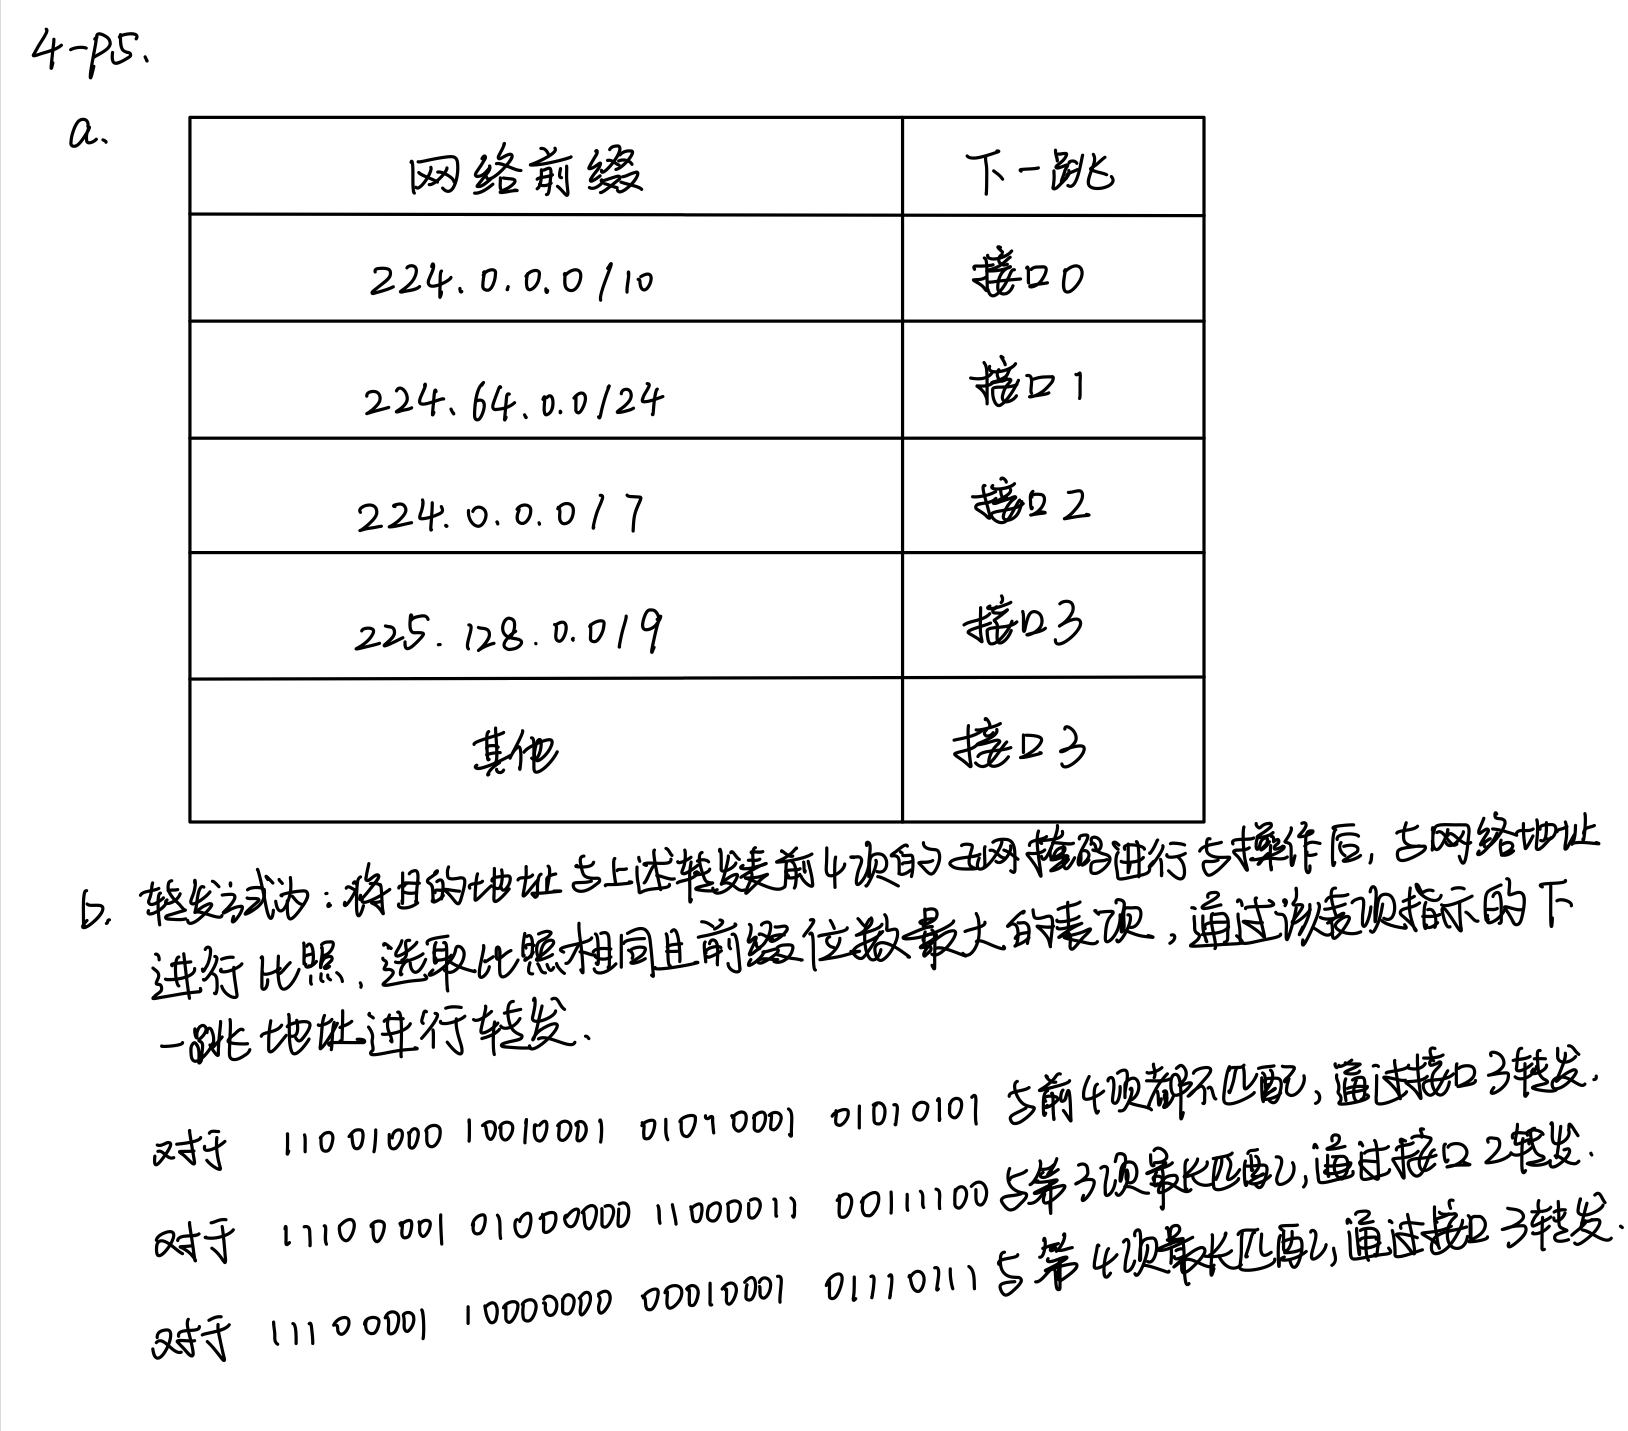 4-P5.
a.
网络前缀 下一跳
224.0.0.0/10 接口0
224.64.0.0/24 接口1
224.0.0.0/7 接口2
225.128.0.0/9 接口3
其他 接口3
b. 转发方式为：将目的地址与上述转发表前4项的子网掩码进行与操作后，与网络地址
进行比照，选取比照相同且前缀位数最大的表项，通过该表项指示的下
一跳地址进行转发.
对于 11001000 10010001 01010001 01010101 与前4项都不匹配，通过接口3转发.
对于 11100001 01000000 11000011 00111100 与第3项最长匹配，通过接口2转发.
对于 11100001 10000000 00010001 01110111 与第4项最长匹配，通过接口3转发.